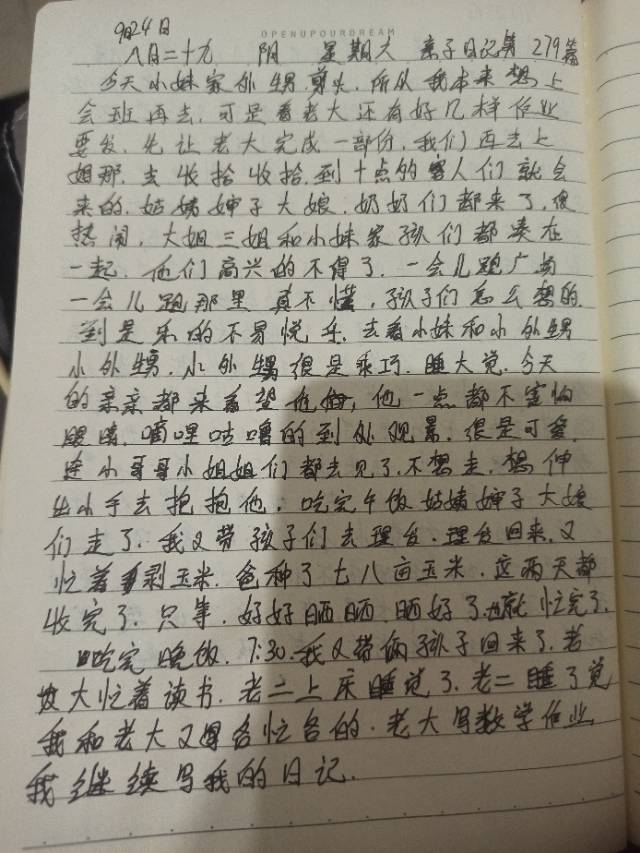 9月24日
OPENUPOURDREAM
八月二十九 阴 星期六 亲子日记第279篇
今天小妹家外甥剪头.所以我本来想上
会班再去.可是看老大还有好几样作业
要发.先让老大完成一部份.我们再去上
姐那.去收拾收拾.到十点的客人们就会
来的.姑姑婶子大娘.奶奶们都来了.很
热闹.大姐三姐和小妹家孩们都凑在
一起.他们高兴的不得了.一会儿跑广场
一会儿跑那里 真不懂,孩子们怎么想的.
到是乐的不易悦乎.去看小妹和小外甥
小外甥.小外甥很是乖巧.睡大觉.今天
的亲亲都来看望他,他一点都不害怕
眼睛.嘀哩咕噜的到处观景.很是可爱.
连小哥哥小姐姐们都去见了.不想走.想伸
出小手去抱抱他;吃完午饭姑姑婶子大娘
们走了.我又带孩子们去理发.理发回来.又
忙着剥玉米.爸种了七八亩玉米.这两天都
收完了.只等.好好晒晒.晒好了就忙完了.
吃完晚饭.7:30.我又带俩孩子回来了.老
大忙着读书.老二上床睡觉了.老二睡了觉
我和老大又各忙各的.老大写数学作业
我继续写我的日记.